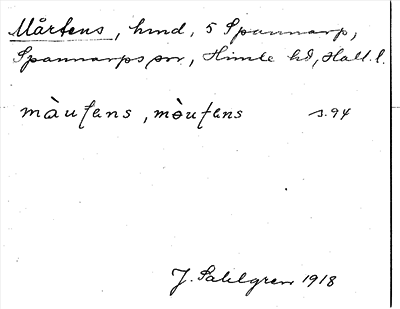 Mårtens, hmd, 5 Spannarp,
Spannarps sn, Himle hd, Hall. l.
màuʃens, mòuʃens s. 94
J. Sahlgren 1918